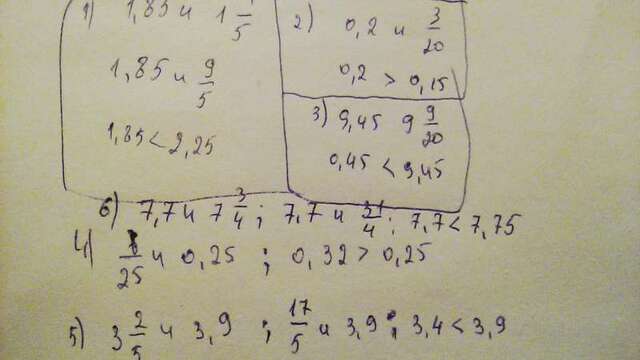 1) 1,85 и 1 4/5
1,85 и 9/5
1,85 < 2,25
2) 0,2 и 3/20
0,2 > 0,15
3) 9,45 9 9/20
0,45 < 9,45
6) 7,7 и 7 3/4 ; 7,7 и 31/4 ; 7,7 < 7,75
4) 8/25 и 0,25 ; 0,32 > 0,25
5) 3 2/5 и 3,9 ; 17/5 и 3,9 ; 3,4 < 3,9